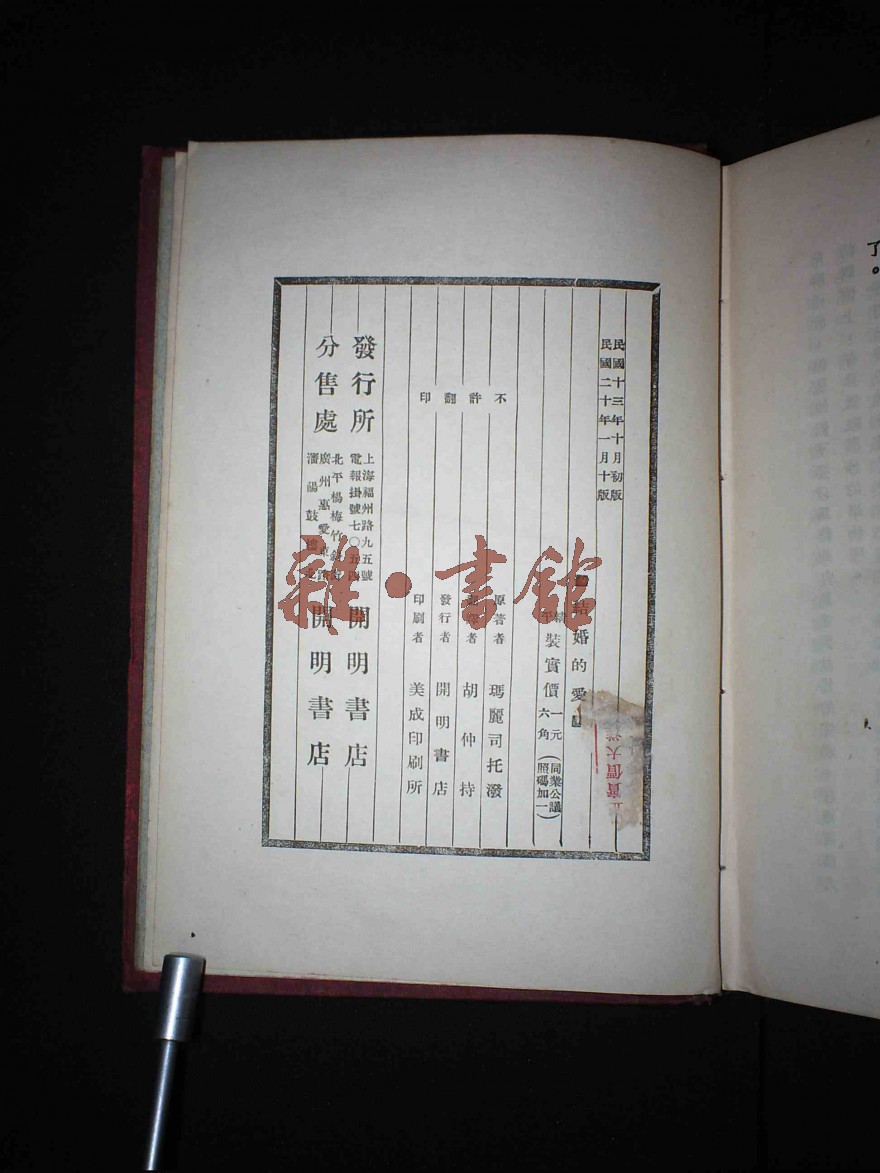 民國十三年十月初版
民國二十年一月十版
結婚的愛
精
平
裝實價
一元
六角
(同業公議
照碼加一)
實價大洋
不許翻印
原著者 瑪麗司托潑
者 胡仲持
發行者 開明書店
印刷者 美成印刷所
發行所
上海福州路九五號
電報掛號七〇五四
開明書店
分售處
北平楊梅竹斜街
廣州惠愛東路
瀋陽鼓樓北
開明書店
雜·書館
了。